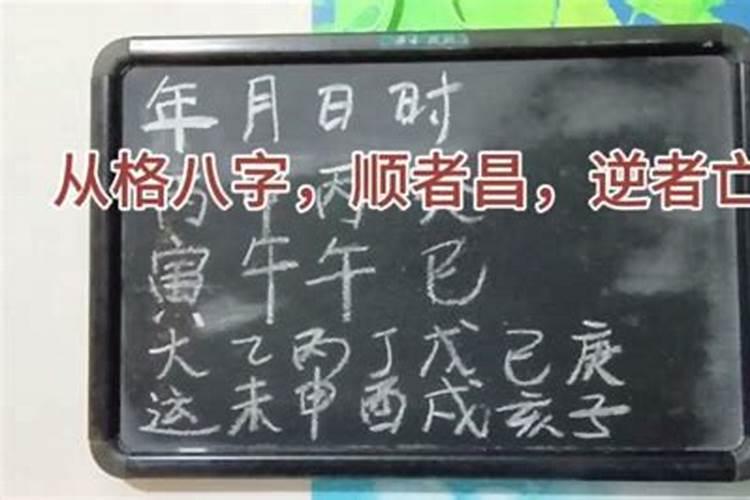 年月日时
从格八字，顺者昌，逆者亡
丙甲丙癸
寅午午巳
大乙丙丁戊己庚
运未申酉戌亥子